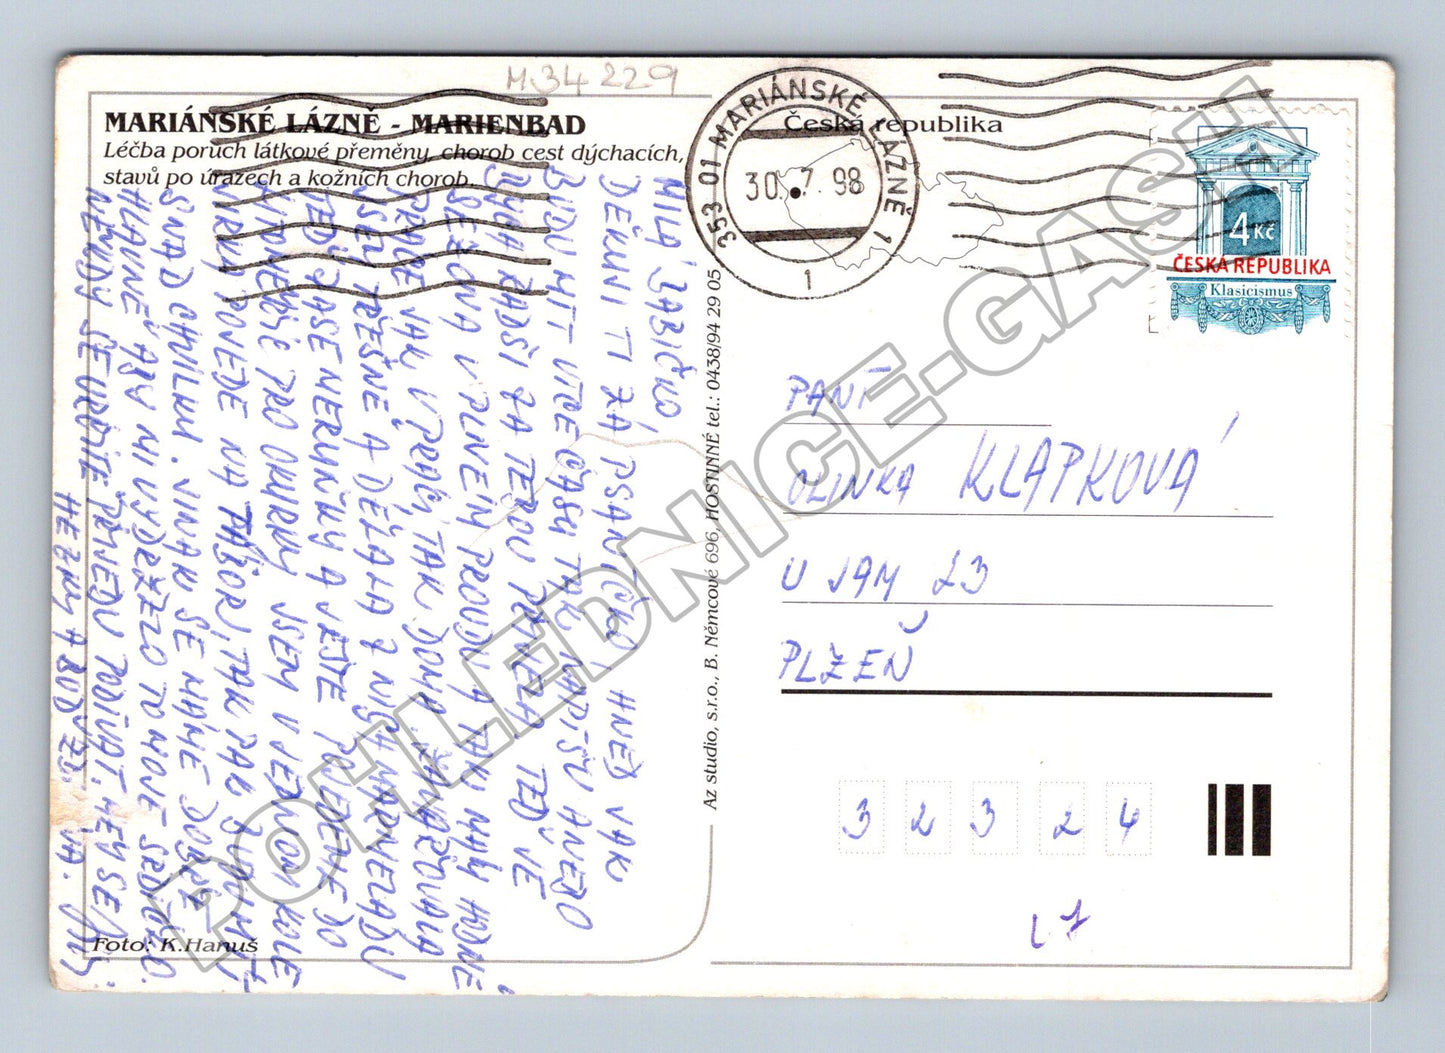 M 34 229
MARIÁNSKÉ LÁZNĚ - MARIENBAD
Léčba poruch látkové přeměny, chorob cest dýchacích,
stavů po úrazech a kožních chorob.
Česká republika
353 01 MARIÁNSKÉ LÁZNĚ 1
30. 7. 98
1
4 Kč
ČESKÁ REPUBLIKA
Klasicismus
MILÁ BABIČKO
DĚKUJI TI ZA PSANÍČKO, HNED JAK
BUDU MÍT VÍCE ČASU TAK NAPÍŠU ANEBO
RADŠI ZA TEBOU PŘIJEDU TEĎ JE
SEZONA V PLNÉM PROUDU A TAK MÁM HODNĚ
PRÁCE JAK V PRÁCI, TAK DOMA.
JSEM TŘEŠNĚ A DĚLALA Z NICH MARMELÁDU
TEĎ ZASE MERUŇKY A JEŠTĚ POJEDEME DO
PRO OKURKY. JSEM V JEDNOM KOLE
JIRKA POVEDE NA TÁBOR, TAK PAK BUDU MÍT
SNAD CHVILKU. JINAK SE MÁME DOBŘE
HLAVNĚ ABY MI VYDRŽELO TO MOJE SRDÍČKO.
NĚKDY SE URČITĚ PŘIJEDU PODÍVAT. MĚJ SE
HEZKY A BUĎ ZDRÁVA.
Foto: K.Hanuš
Az studio, s.r.o., B. Němcové 696, HOSTINNÉ tel.: 0438/94 29 05
PANÍ
OLINKA KLAPKOVÁ
U JAM 23
PLZEŇ
3 2 3 2 4
L7
POHLEDNICE-GASH